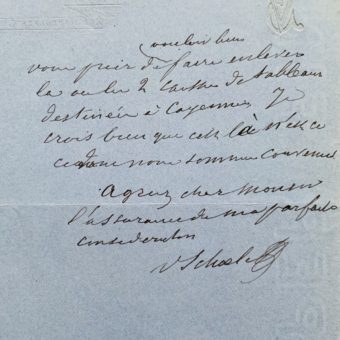 vouloir bien
vous prier de faire enlever
la ou les 2 caisses de tableaux
destinées à Cayenne. Je
crois bien que cest là n'est ce
dont nous sommes convenus
agréez cher Monsieur
l'assurance de ma parfaite
consideration
V Schoelc